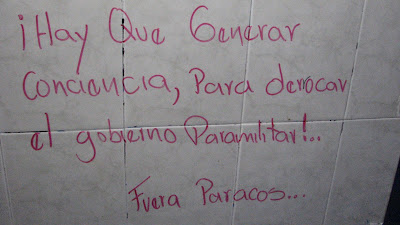 ¡Hay Que Generar
Conciencia, Para derrocar
el gobierno Paramilitar!..
Fuera Paracos...